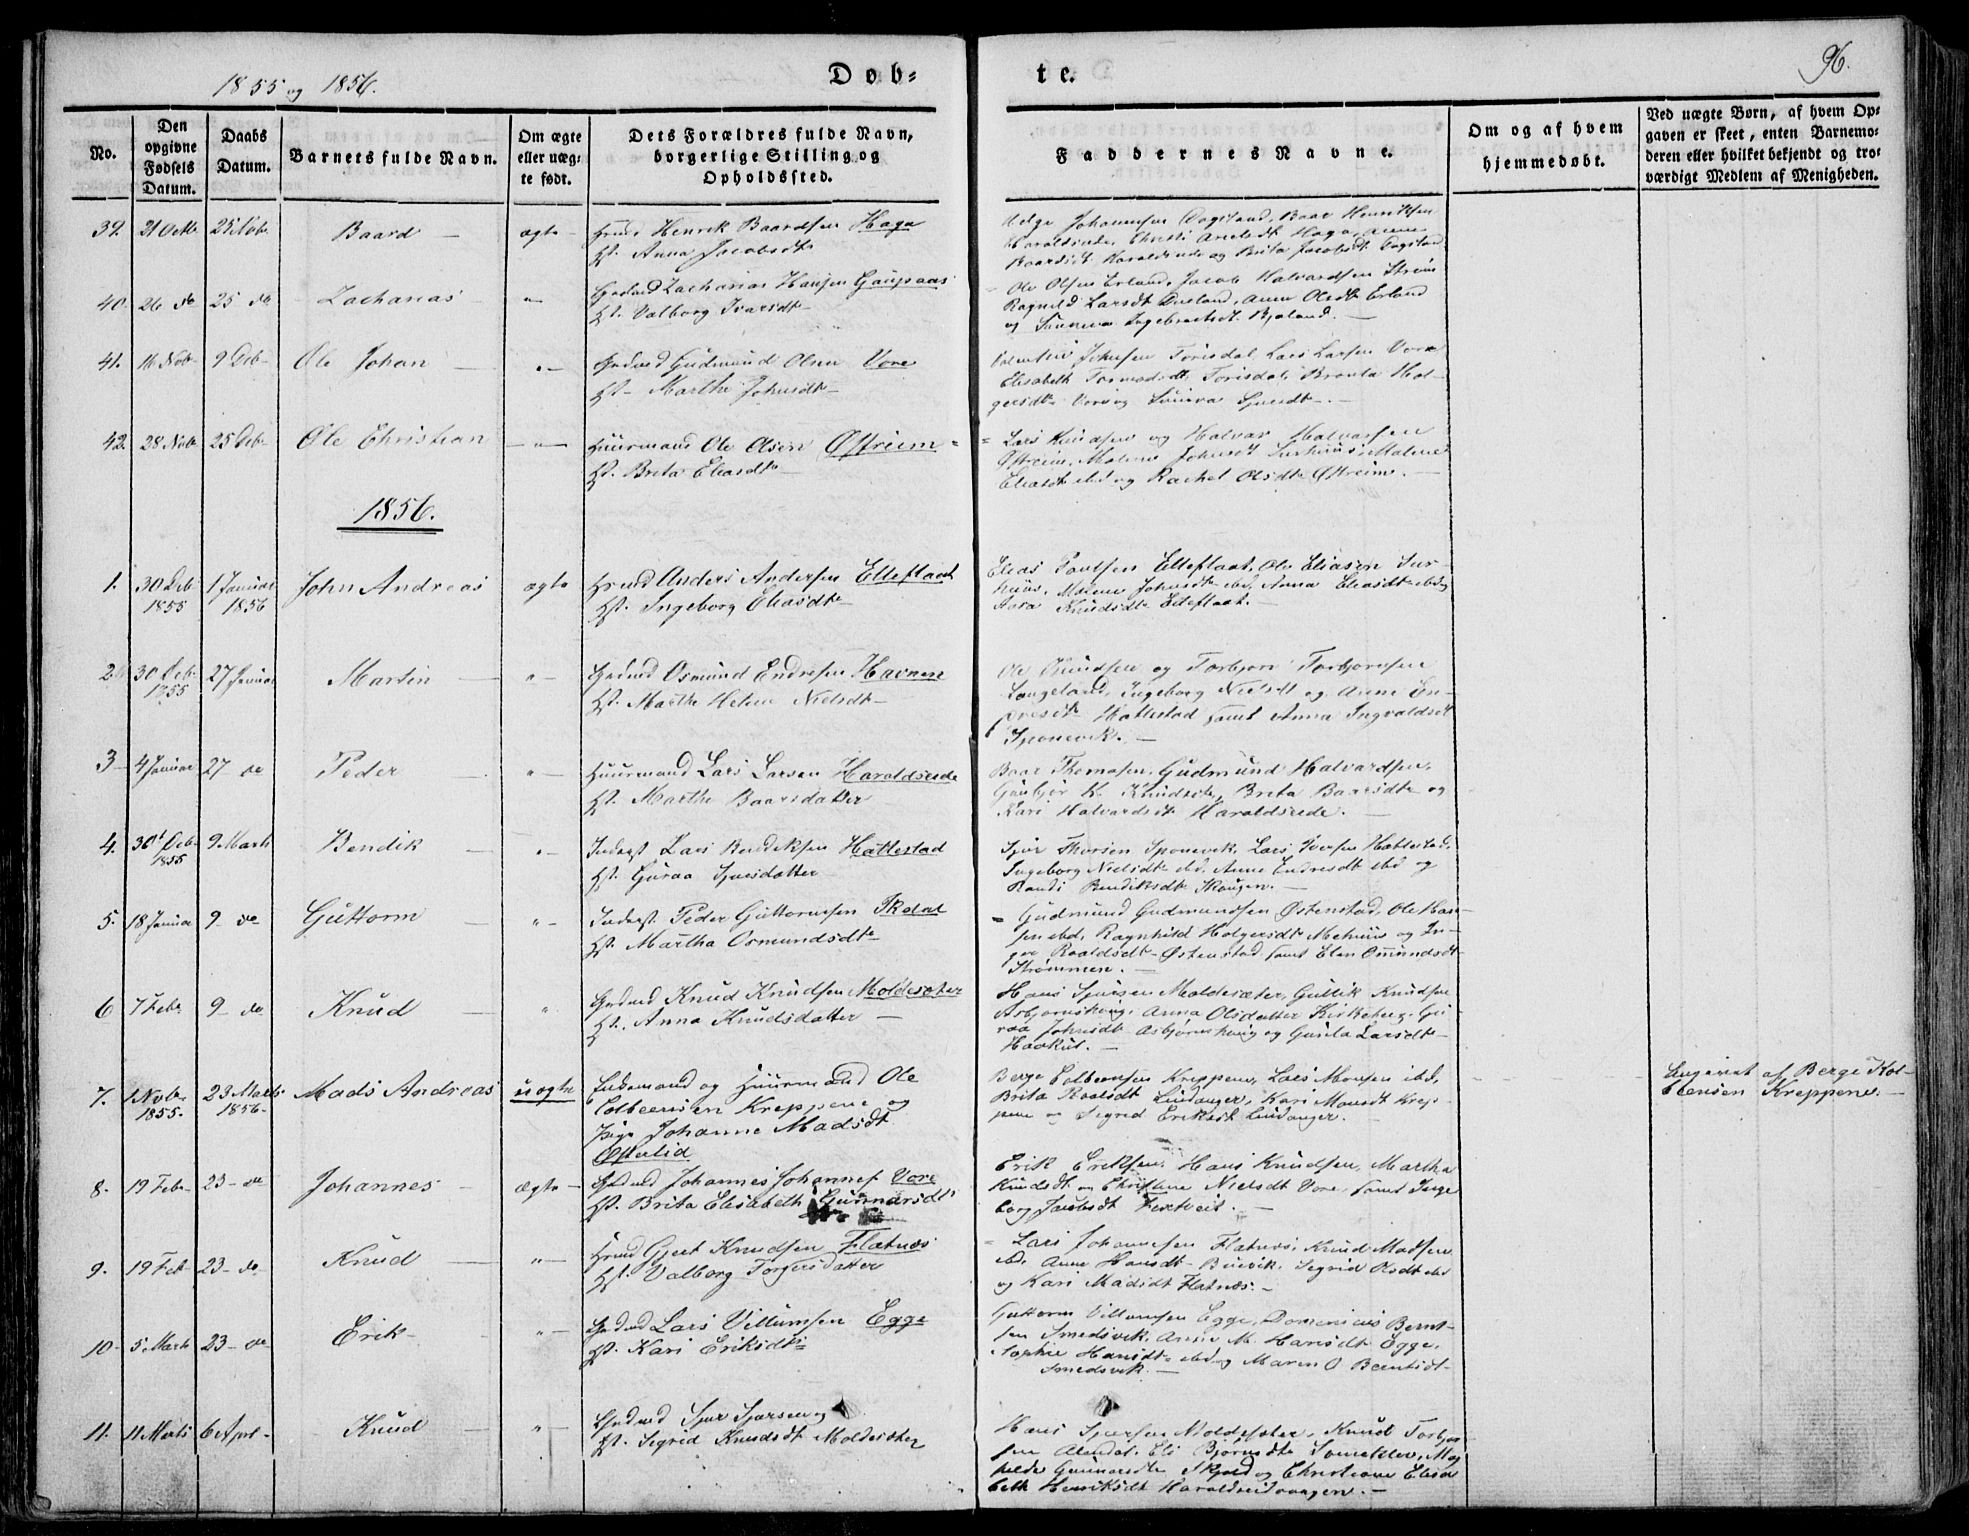 1855 og 1856.
Døb=
te.
96.
No.
Den opgivne Fødsels Datum.
Daabs Datum.
Barnets fulde Navn.
Om ægte eller uæg= te født.
Dets Forældres fulde Navn, borgerlige Stilling og Opholdssted.
Faddernes Navne.
Om og af hvem hjemmedøbt.
Ved uægte Børn, af hvem Op= gaven er skeet, enten Barnemo= deren eller hvilket bekjendt og tro= værdigt Medlem af Menigheden.
39. 21 Octb 25 Novb. Baard — ægte — Henrik Baardsen Haga
H. Anna Jacobsdt
Helge Johannesen Dagsland, Baar Henriksen
Haraldseide, Christi Haga, Anne
Baardsdt Haraldseide og Brita Jacobsdt Dagsland
40. 26 do 25 do Zacharias — Grdmd Zacharias Hansen Gaupaas
H. Valborg Ivarsdt —
Ole Olsen Erland, Jacob Halvardsen
Ragnild Larsdt Anne Olsdt Erland
og Ingebrectsdt Bjoland. —
41. 16 Nob— 9 Deb— Ole Johan — Grdmd Gudmund Olsen Vore
H— Marthe Johnsdt —
Johnsen Torisdal, Lars Larsen Vore
Elisabeth Tormodsdt Torisdal, Hol-
gersdt Vore og Sjursdt —.
42. 28 Nob 25 Deb Ole Christian — Huurmand Ole Olsen Østreim =
H. Brita Eliasdt —
= Lars Knudsen og Halvar Halvarsen
Østreim, Malene Johnsdt Malene
Eliasdt ibd og Rachel Olsdt Østreim. —
1856.
1. 30 Deb 1855 1 Januar 1856 John Andreas ægte Anders Andersen Elleflaat
H. Ingeborg Eliasdt —
Elias Poulsen Elleflaat, Ole Eliasen
Malene Johnsdt ibd, Anna Eliasdt ibd og
Knudsdt Elleflaat. —
2 30 Deb 1855 27 Januar Martin — Grdmd Osmund Endresen Havnen
H. Marthe Helene Nielsdt —
Ole Knudsen og Torbjorn Torbjornsen
Langeland, Ingeborg Nielsdt og Anne En-
dresdt Hattestad samt Anna Ingvaldsdt
Sponevik. —
3 4 Januar 27 do Peder — Huurmand Lars Larsen Haraldseide
H. Marthe Baarsdatter —
Baar Thomasen, Gudmund Halvardsen,
K. Knudsdt, Brita Baarsdt og
Kari Halvardsdt Haraldseide. —
4. 30 Deb 1855 9 Marts Bendik — Inderst Lars Bendiksen Hattestad
H. Guraa Sjursdatter —
Sjur Thorsen Sponevik, Lars Hattestad,
Ingeborg Nielsdt ibd, Anne Endresdt ibd og
Randi Bendiksdt Skougen. —
5. 18 Januar 9 do Guttorm — Inderst Peder Guttormsen
H. Martha Osmundsdt —
Gudmund Gudmundsen Østenstad, Ole Han-
sen ibd, Ragnhild Holgersdt Mehuus og In-
ger Roaldsdt Østenstad samt Elen Omundsdt
Strømmen. —
6 7 Febr 9 do Knud — Grdmd Knud Knudsen Moldesæter
H. Anna Knudsdatter —
Hans Sjursen Moldesæter, Gullik Knudsen
Asbjornshoug, Anna Olsdatter Kirkeberg, Gu-
raa Johnsdt Asbjørnshoug og Gunla Larsdt
Haakul. —
7. 1 Nobr 1855. 23 Marts 1856 — Mads Andreas uægte Enkemand og Huurmand Ole
Colbeensen Kreppene og
Pige Johanne Madsdt
Østerlid
Berge Colbeensen Kreppene, Lars Monsen ibd,
Brita Roaldsdt Leudanger, Kari Monsdt Krep-
pene og Segrid Eriksdt Leudanger.
Angivet af Berge Kol-
beensen Kreppene. —
8. 19 Febr 23 — do Johannes — ægte — Grdmd Johannes Johannes. Vore
H. Brita Elisabeth Gunnarsdt
Erik Eriksen, Hans Knudsen, Martha
Knudsdt og Christine Nielsdt Vore, samt Inge
borg Jacobsdt —
9. 19 Feb 23 — do Knud — Gjert Knudsen Flatnæs
H. Valborg Torgersdatter
Lars Johannesen Flatnæs, Knud Madsen
ibd, Anne Hansdt Segrid Olsdt ibd
og Kari Madsdt Flatnæs. —
10 — 5 Marts 23 — do Erik — Grdmd Lars Villumsen Egge
H. Kari Eriksdt
Guttorm Villumsen Egge, Dominicus Bernt-
sen Smedsvik, Anne M. Hansdt Egge,
Sophie Hansdt ibd og Maren O Berntsdt
Smedsvik. —
11. 11 Marts 6 Apri — Knud — Grdmd Sjur Sjursen og
H. Segrid Knudsdt Moldesæter
Hans Sjursen Moldesæter, Knud Torbjor
sen Eli Bjørnsdt Mag
Gunnarsdt Skjold og Christiane Elisa
beth Henriksdt Haraldseidvaagen. —